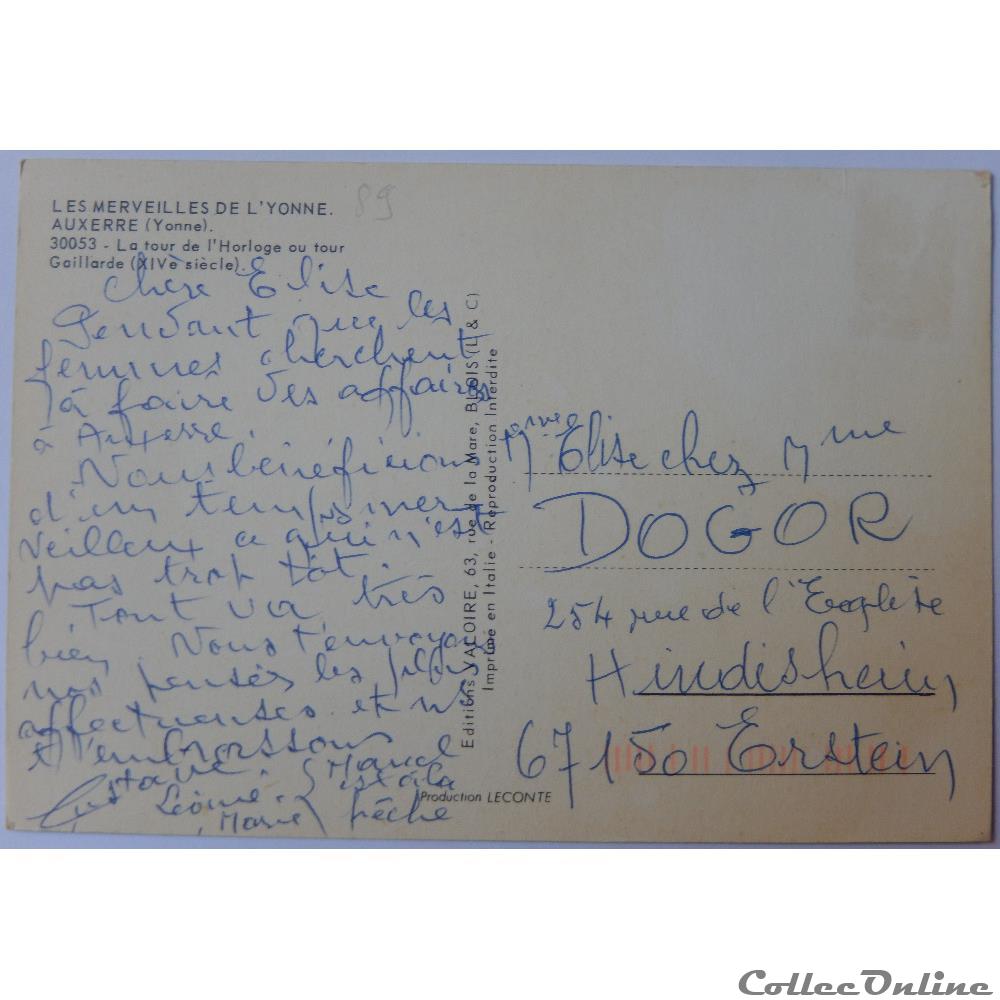 LES MERVEILLES DE L'YONNE.
89
AUXERRE (Yonne).
30053 - La tour de l'Horloge ou tour
Gaillarde (XIVè siècle).
Chère Elise
Pendant que les
femmes cherchent
à faire des affaires
à Auxerre.
Nous bénéficions
d'un temps mer-
veilleux ce qui n'est
pas trop tôt.
Tout va très
bien. Nous t'envoyons
nos pensées les plus
affectueuses et ns
t'embrassons
Gustave Marcel
Léonie. est à la
Marie pêche
Editions VALOIRE, 63, rue de la Mare, BLOIS (L & C)
Imprimé en Italie - Reproduction Interdite
Production LECONTE
Elise chez Mme
DOGOR
254 rue de l'Eglise
Hindisheim
67150 Erstein
CollecOnline